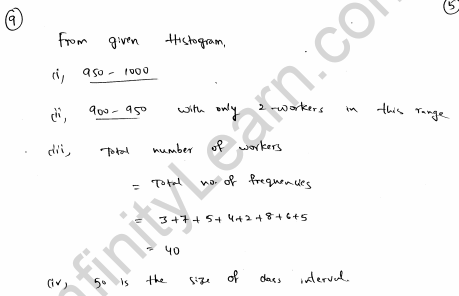 9
5
From given Histogram,
(i), 950 - 1000
(ii), 900 - 950 with only 2-workers in this range
(iii), Total number of workers
= Total no. of frequencies
= 3+7+5+4+2+8+6+5
= 40
(iv), 50 is the size of class interval.
infinityLearn.com